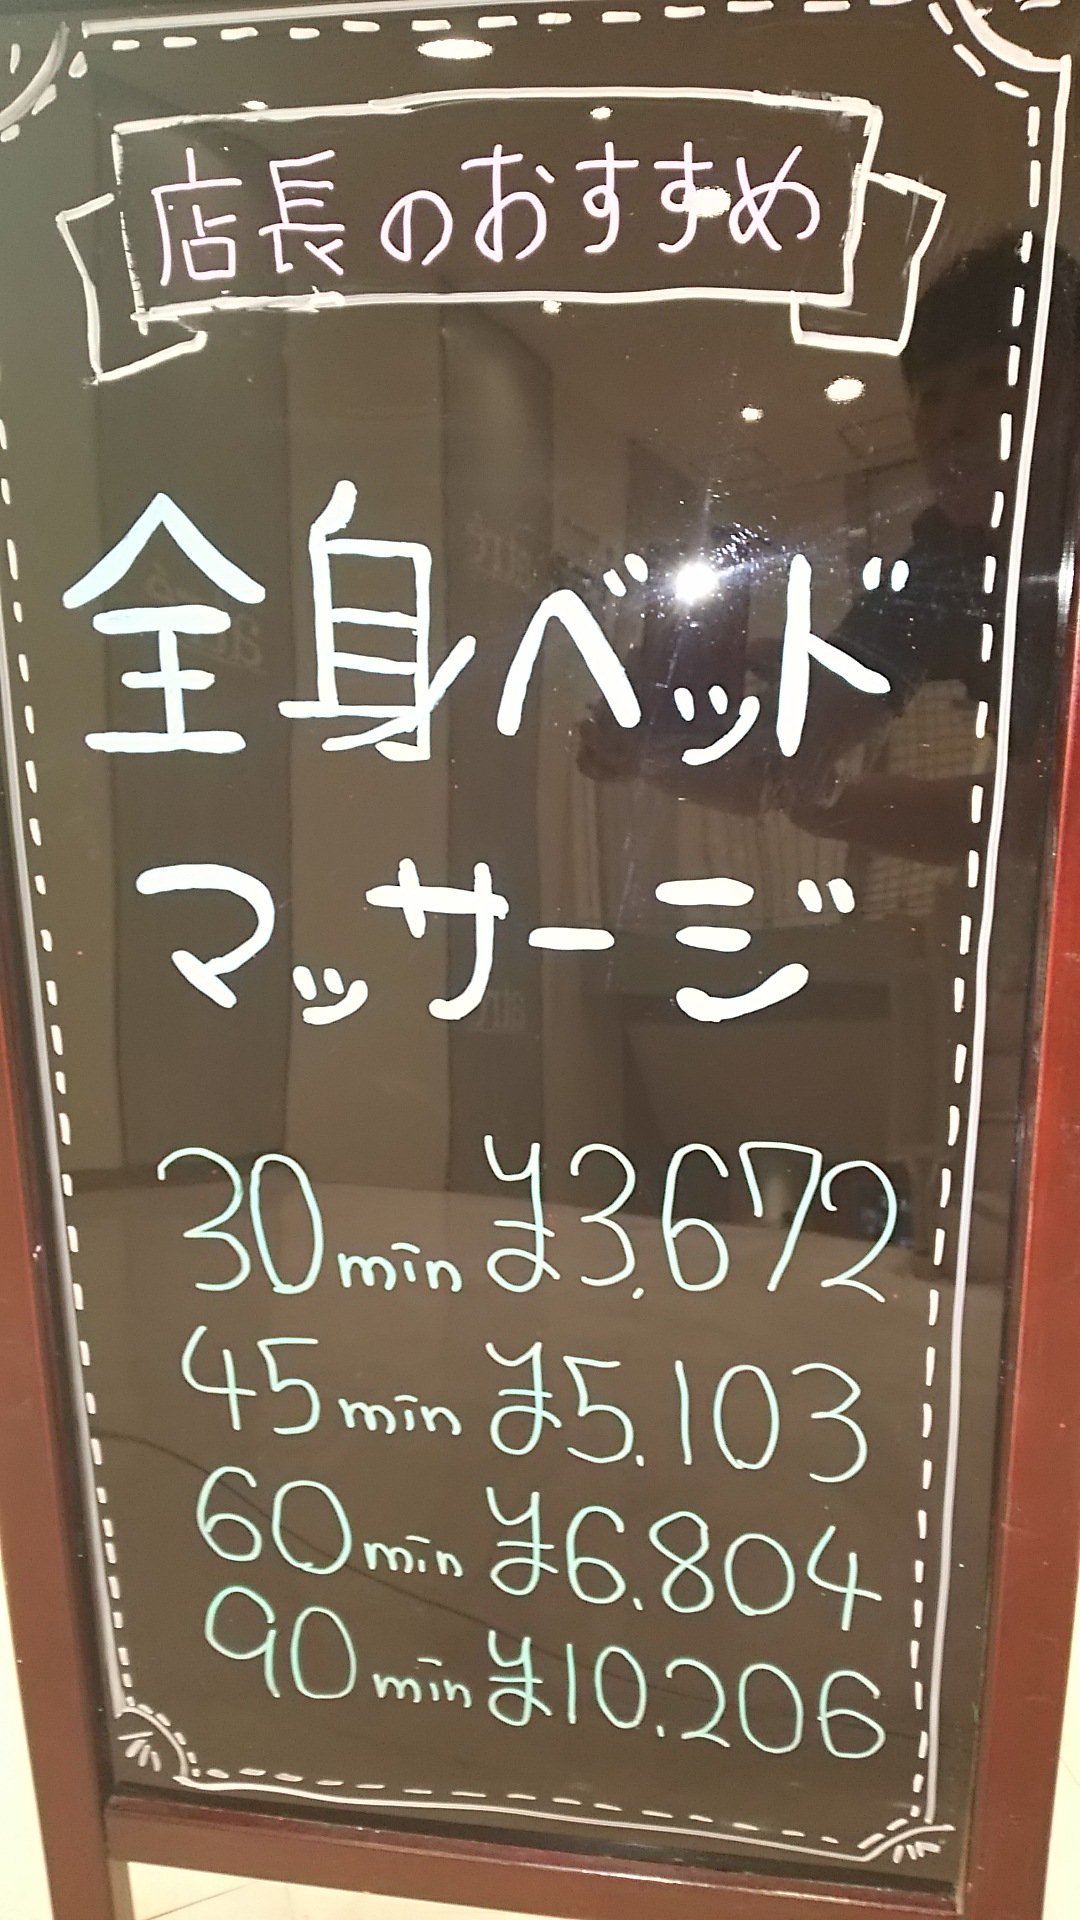 店長のおすすめ
全身ベッド
マッサージ
30min ¥3.672
45min ¥5.103
60min ¥6.804
90min ¥10.206